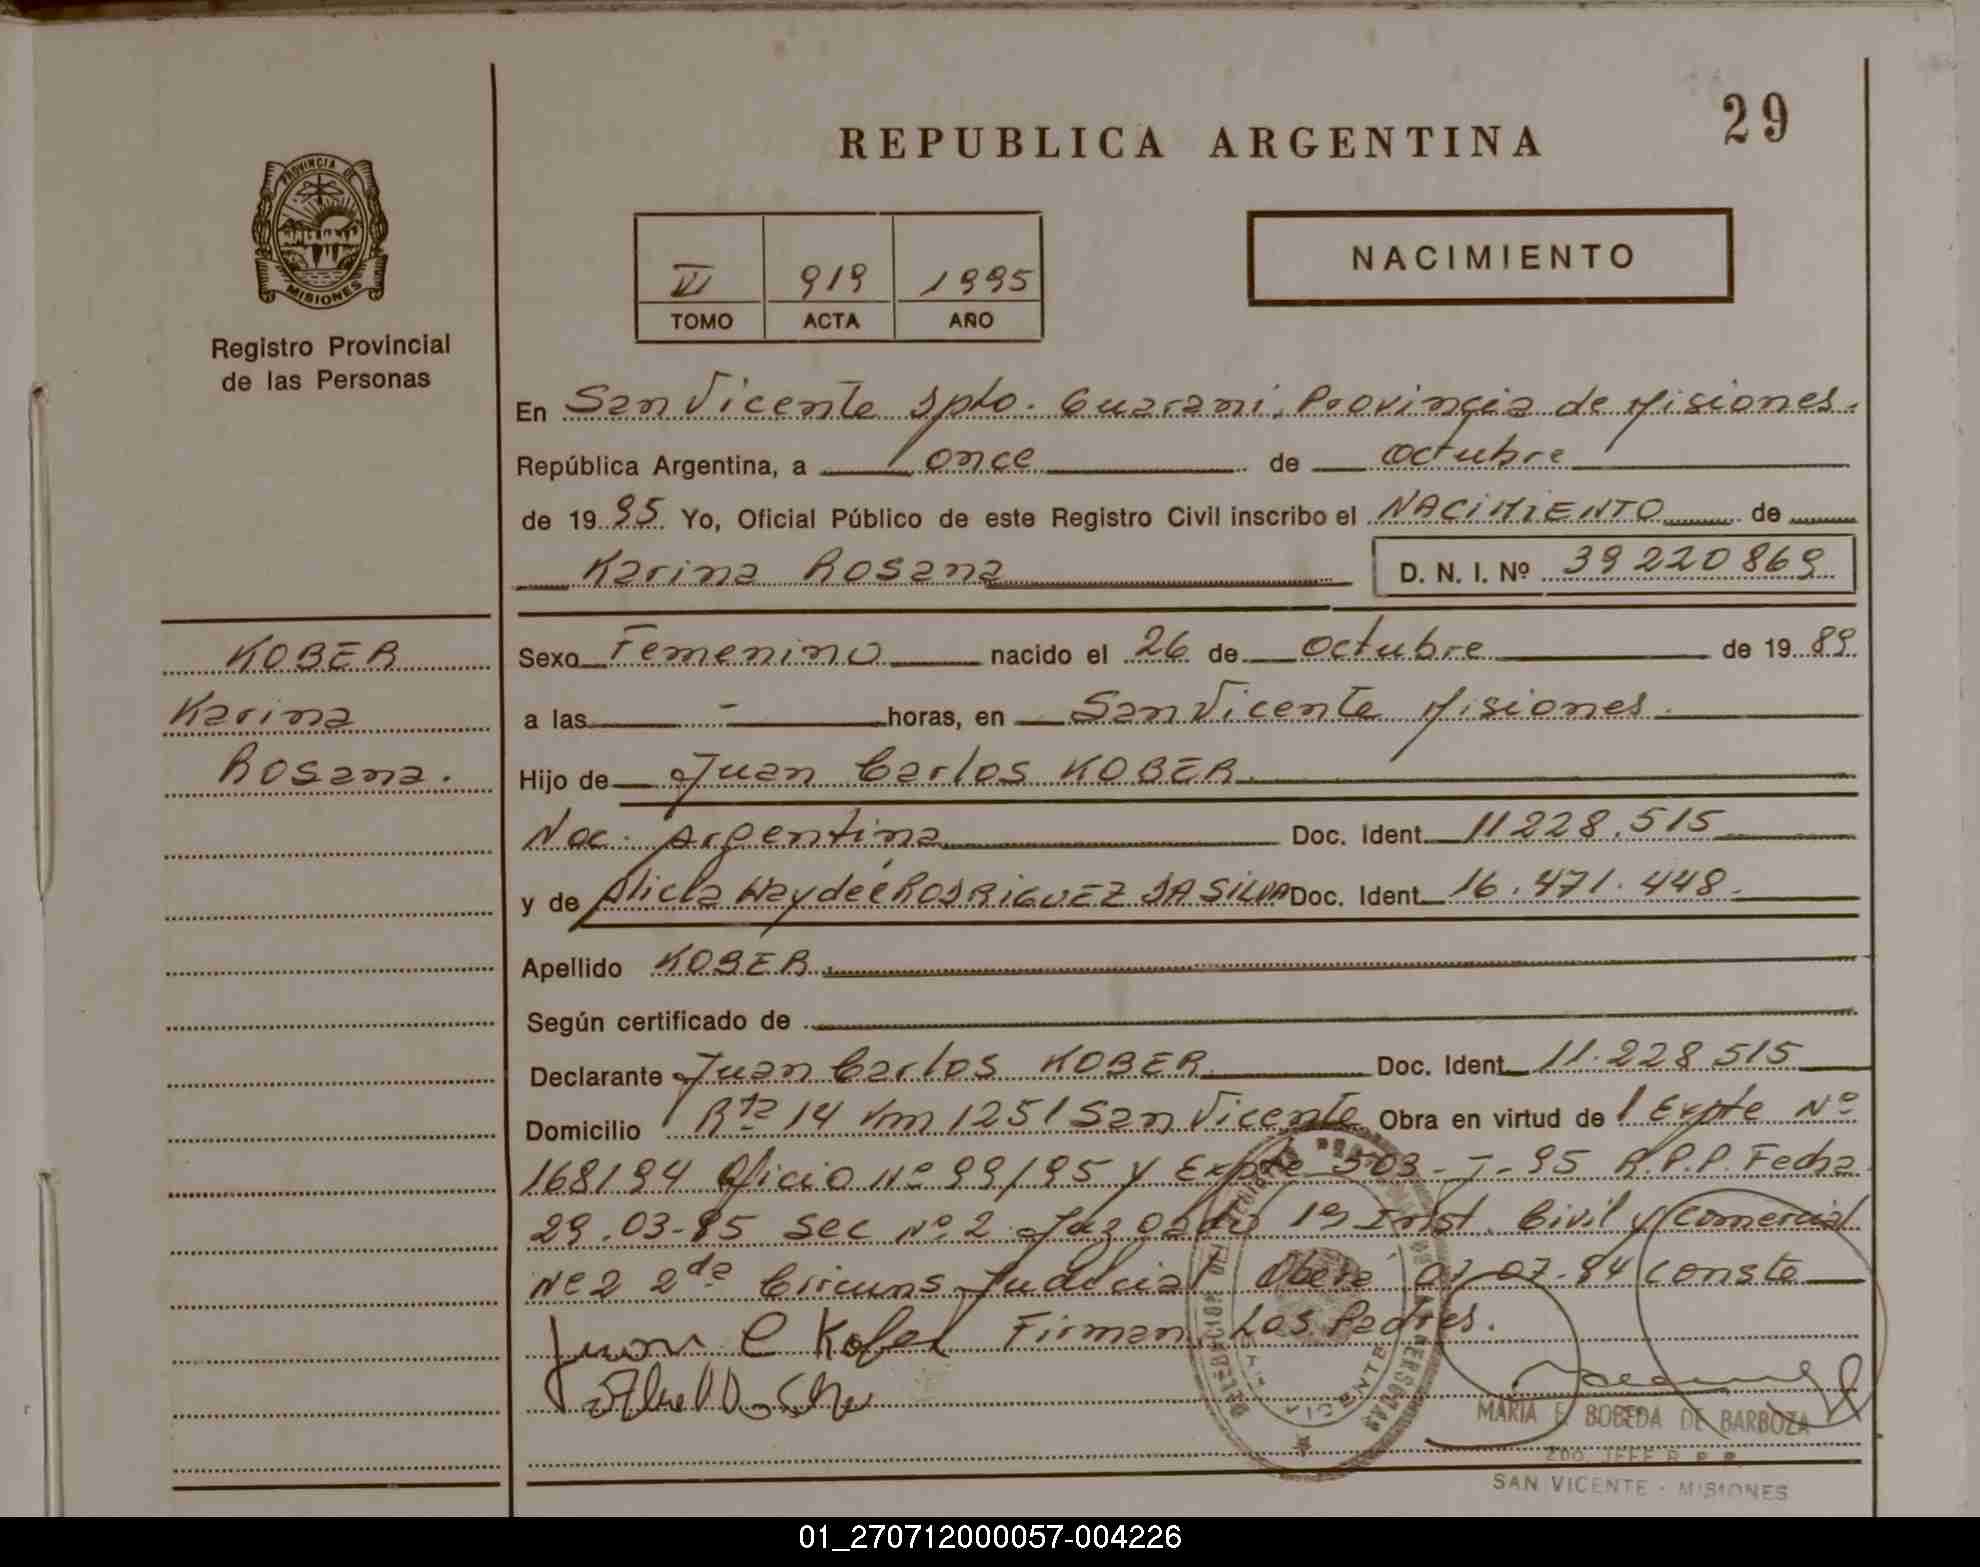 29
REPUBLICA ARGENTINA
PROVINCIA DE
MISIONES
Registro Provincial
de las Personas
VI 919 1995
TOMO ACTA AÑO
NACIMIENTO
En San Vicente Dpto. Guarani, Provincia de Misiones.
República Argentina, a once de octubre
de 1995 Yo, Oficial Público de este Registro Civil inscribo el NACIMIENTO de
Karina Rosana D. N. I. Nº 39220869
KOBER
Karina
Rosana.
Sexo Femenino nacido el 26 de octubre de 1989
a las - horas, en San Vicente Misiones.
Hijo de Juan Carlos KOBER
Nac. Argentina Doc. Ident. 11228.515
y de Alicia Haydeé RODRIGUEZ DA SILVA Doc. Ident. 16.471.448.
Apellido KOBER
Según certificado de
Declarante Juan Carlos KOBER Doc. Ident. 11.228.515
Domicilio Rta 14 Km 1251 San Vicente Obra en virtud de Expte Nº
168194 Oficio Nº 99/95 y Expte 503-J-95 R.P.P. Fecha
29.03-95 Sec Nº 2 Juzgado 1º Inst. Civil y Comercial
Nº 2 2da Circuns. Judicial Obera 07-07-94 Conste
Firman Los Padres.
Juan C Kober
MARIA E. BOBEDA DE BARBOZA
2DO. JEFE R. P. P.
SAN VICENTE - MISIONES
01_270712000057-004226